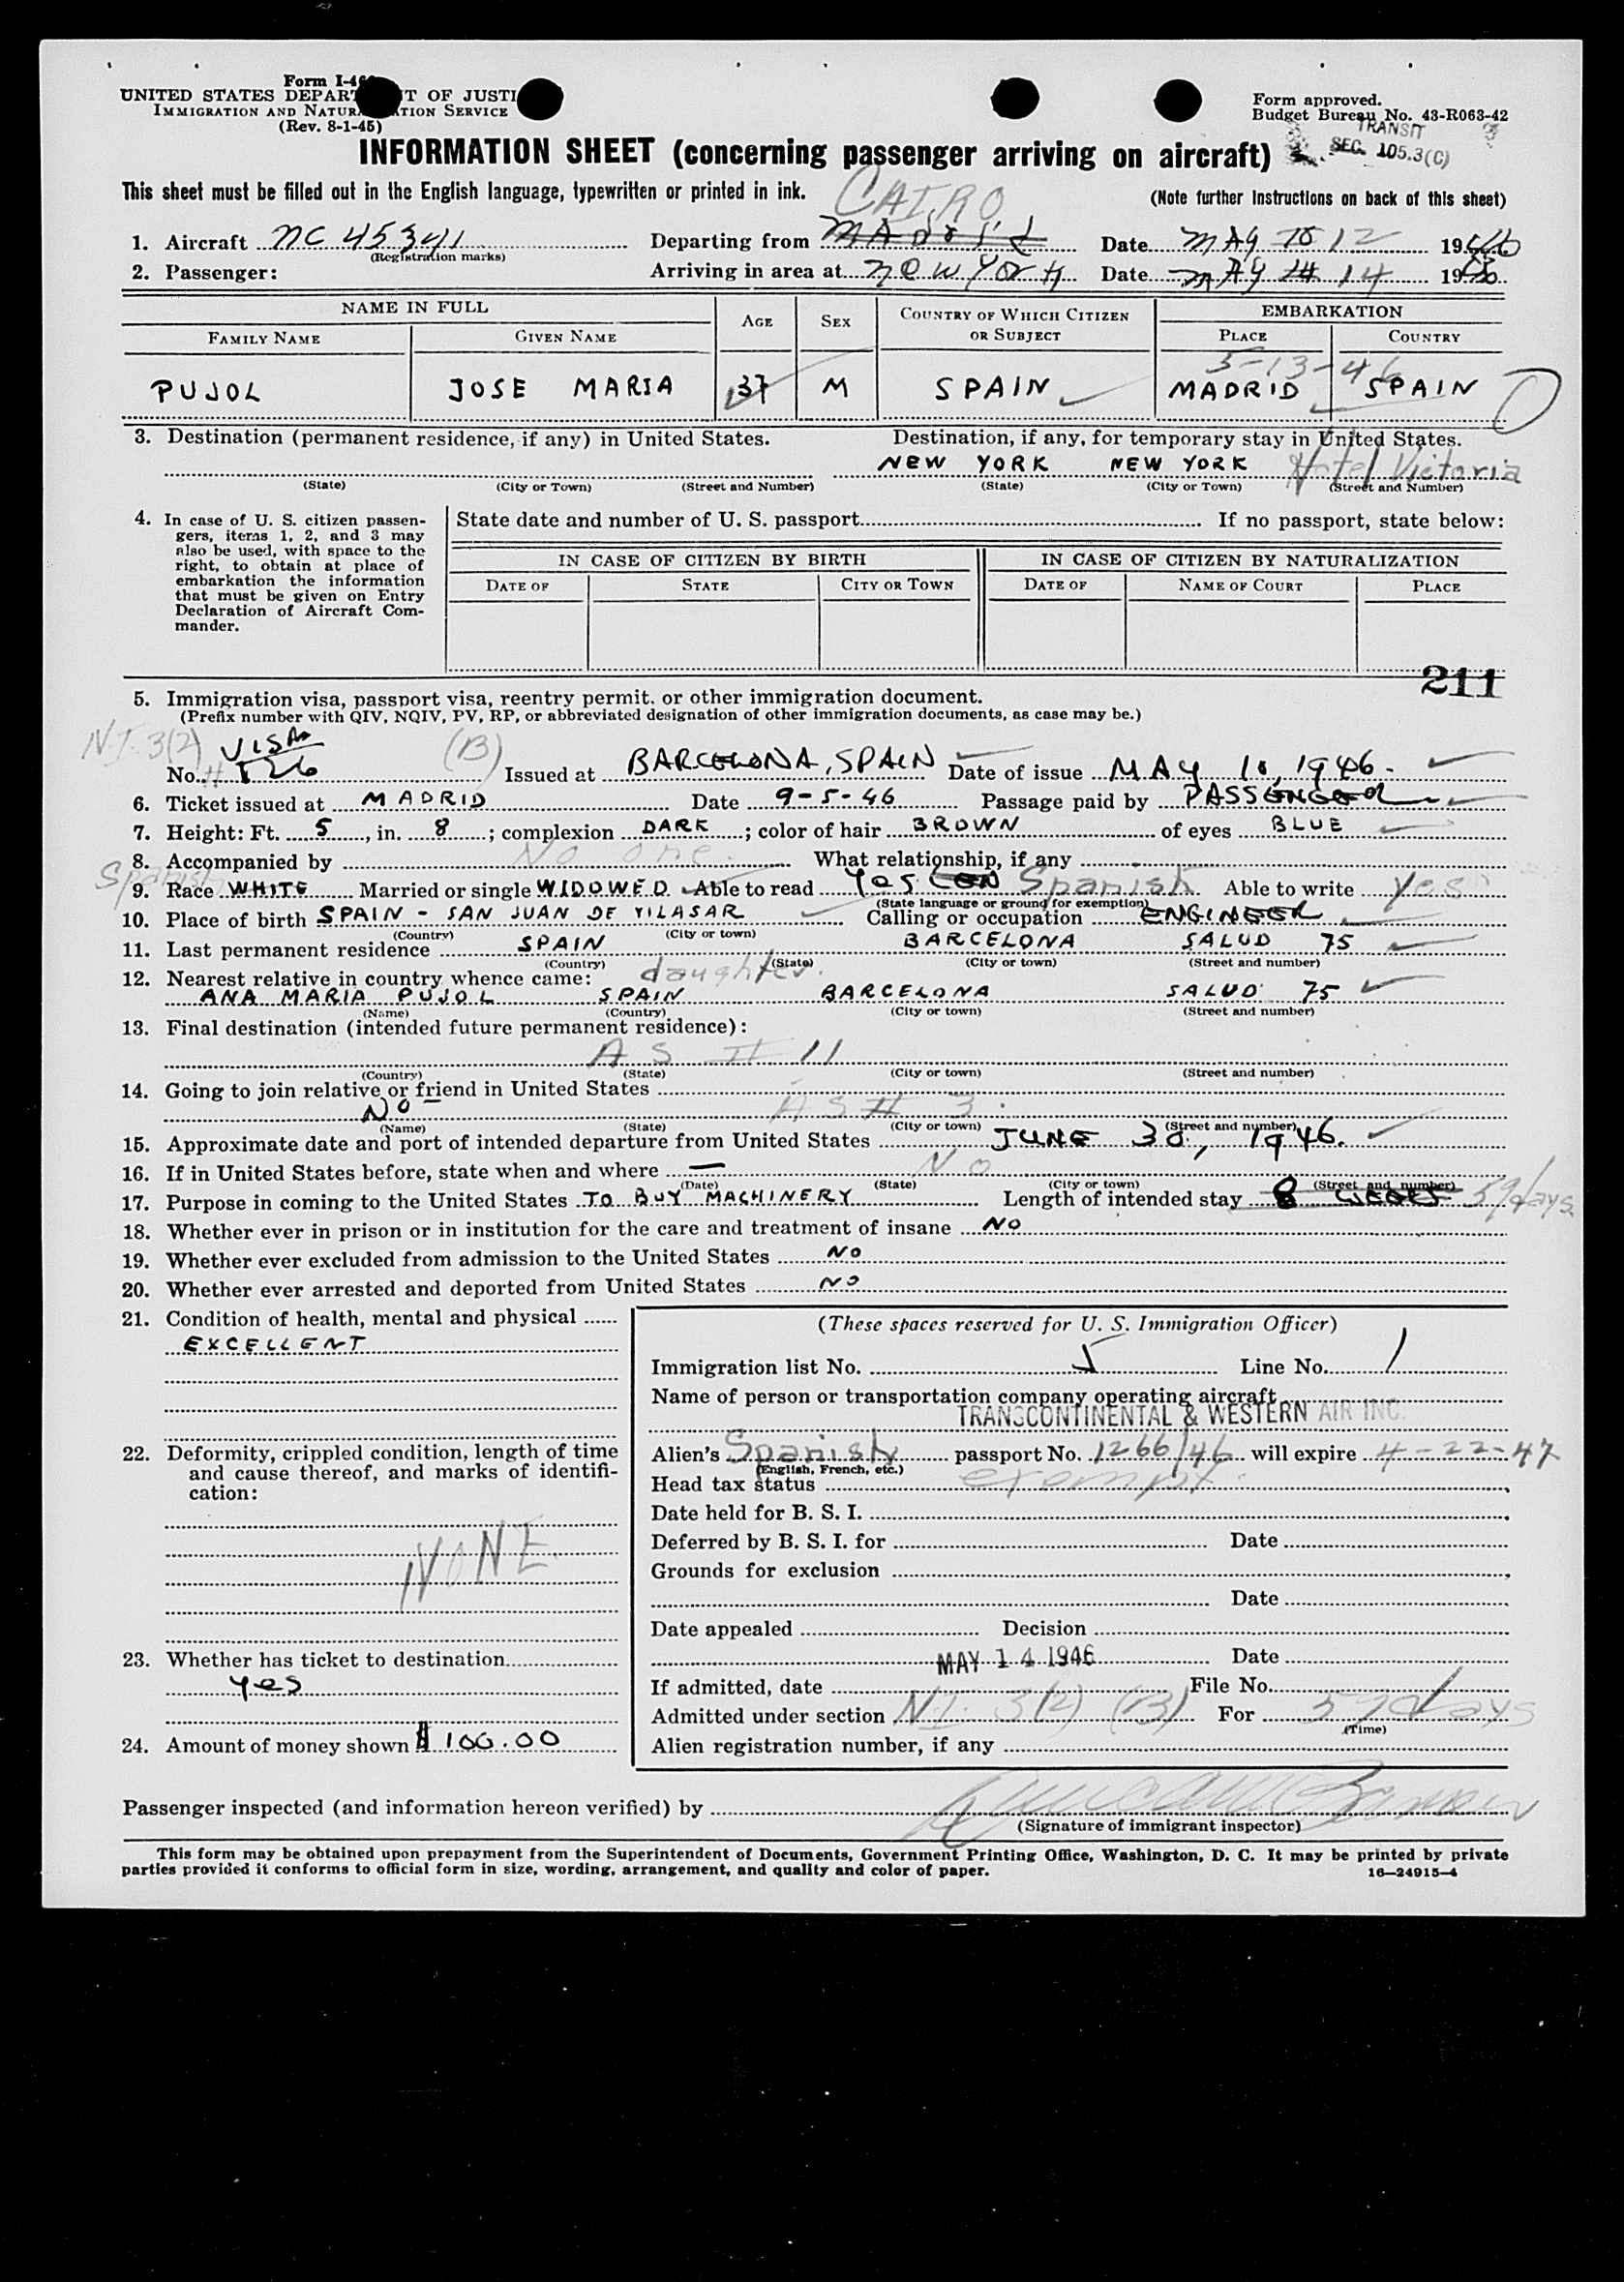 Form I-46
UNITED STATES DEPART T OF JUSTI
IMMIGRATION AND NATUR TION SERVICE
(Rev. 8-1-45)
Form approved.
Budget Bureau No. 43-R063-42
TRANSIT
SEC. 105.3(C)
INFORMATION SHEET (concerning passenger arriving on aircraft)
This sheet must be filled out in the English language, typewritten or printed in ink.
(Note further instructions on back of this sheet)
CAIRO
1. Aircraft NC 45341 Departing from Madrid Date MAY 10 12 1946
(Registration marks)
2. Passenger: Arriving in area at New York Date MAY 14 1946
NAME IN FULL AGE SEX COUNTRY OF WHICH CITIZEN OR SUBJECT EMBARKATION
FAMILY NAME GIVEN NAME PLACE COUNTRY
5-13-46
PUJOL JOSE MARIA 37 M SPAIN MADRID SPAIN
3. Destination (permanent residence, if any) in United States. Destination, if any, for temporary stay in United States.
NEW YORK NEW YORK Hotel Victoria
(State) (City or Town) (Street and Number) (State) (City or Town) (Street and Number)
4. In case of U. S. citizen passen-
gers, items 1, 2, and 3 may
also be used, with space to the
right, to obtain at place of
embarkation the information
that must be given on Entry
Declaration of Aircraft Com-
mander.
State date and number of U. S. passport If no passport, state below:
IN CASE OF CITIZEN BY BIRTH IN CASE OF CITIZEN BY NATURALIZATION
DATE OF STATE CITY OR TOWN DATE OF NAME OF COURT PLACE
211
5. Immigration visa, passport visa, reentry permit, or other immigration document.
(Prefix number with QIV, NQIV, PV, RP, or abbreviated designation of other immigration documents, as case may be.)
N.I. 3(2) VISA (B)
No. # 126 Issued at BARCELONA, SPAIN Date of issue MAY 10, 1946.
6. Ticket issued at MADRID Date 9-5-46 Passage paid by PASSENGER
7. Height: Ft. 5, in. 8; complexion DARK; color of hair BROWN of eyes BLUE
8. Accompanied by No one. What relationship, if any
Spanish
9. Race WHITE Married or single WIDOWED Able to read Yes Spanish Able to write Yes
(State language or ground for exemption)
10. Place of birth SPAIN - SAN JUAN DE VILASAR Calling or occupation ENGINEER
(Country) (City or town)
11. Last permanent residence SPAIN BARCELONA SALUD 75
(Country) (State) (City or town) (Street and number)
12. Nearest relative in country whence came: daughter.
ANA MARIA PUJOL SPAIN BARCELONA SALUD 75
(Name) (Country) (City or town) (Street and number)
13. Final destination (intended future permanent residence):
AS # 11
(Country) (State) (City or town) (Street and number)
14. Going to join relative or friend in United States
NO AS # 3.
(Name) (State) (City or town) (Street and number)
15. Approximate date and port of intended departure from United States JUNE 30, 1946.
16. If in United States before, state when and where — No
(Date) (State) (City or town) (Street and number)
17. Purpose in coming to the United States TO BUY MACHINERY Length of intended stay 8 WEEKS 59 days
18. Whether ever in prison or in institution for the care and treatment of insane NO
19. Whether ever excluded from admission to the United States NO
20. Whether ever arrested and deported from United States NO
21. Condition of health, mental and physical
EXCELLENT
22. Deformity, crippled condition, length of time
and cause thereof, and marks of identifi-
cation:
NONE
23. Whether has ticket to destination
Yes
24. Amount of money shown $ 100.00
(These spaces reserved for U. S. Immigration Officer)
Immigration list No. 5 Line No. 1
Name of person or transportation company operating aircraft
TRANSCONTINENTAL & WESTERN AIR INC.
Alien's Spanish passport No. 1266/46 will expire 4-22-47
(English, French, etc.)
Head tax status exempt.
Date held for B. S. I.
Deferred by B. S. I. for Date
Grounds for exclusion
Date
Date appealed Decision
MAY 14 1946 Date
If admitted, date File No.
Admitted under section N.I. 3(2) (B) For 59 days
(Time)
Alien registration number, if any
Passenger inspected (and information hereon verified) by
(Signature of immigrant inspector)
This form may be obtained upon prepayment from the Superintendent of Documents, Government Printing Office, Washington, D. C. It may be printed by private
parties provided it conforms to official form in size, wording, arrangement, and quality and color of paper. 16—24915-4